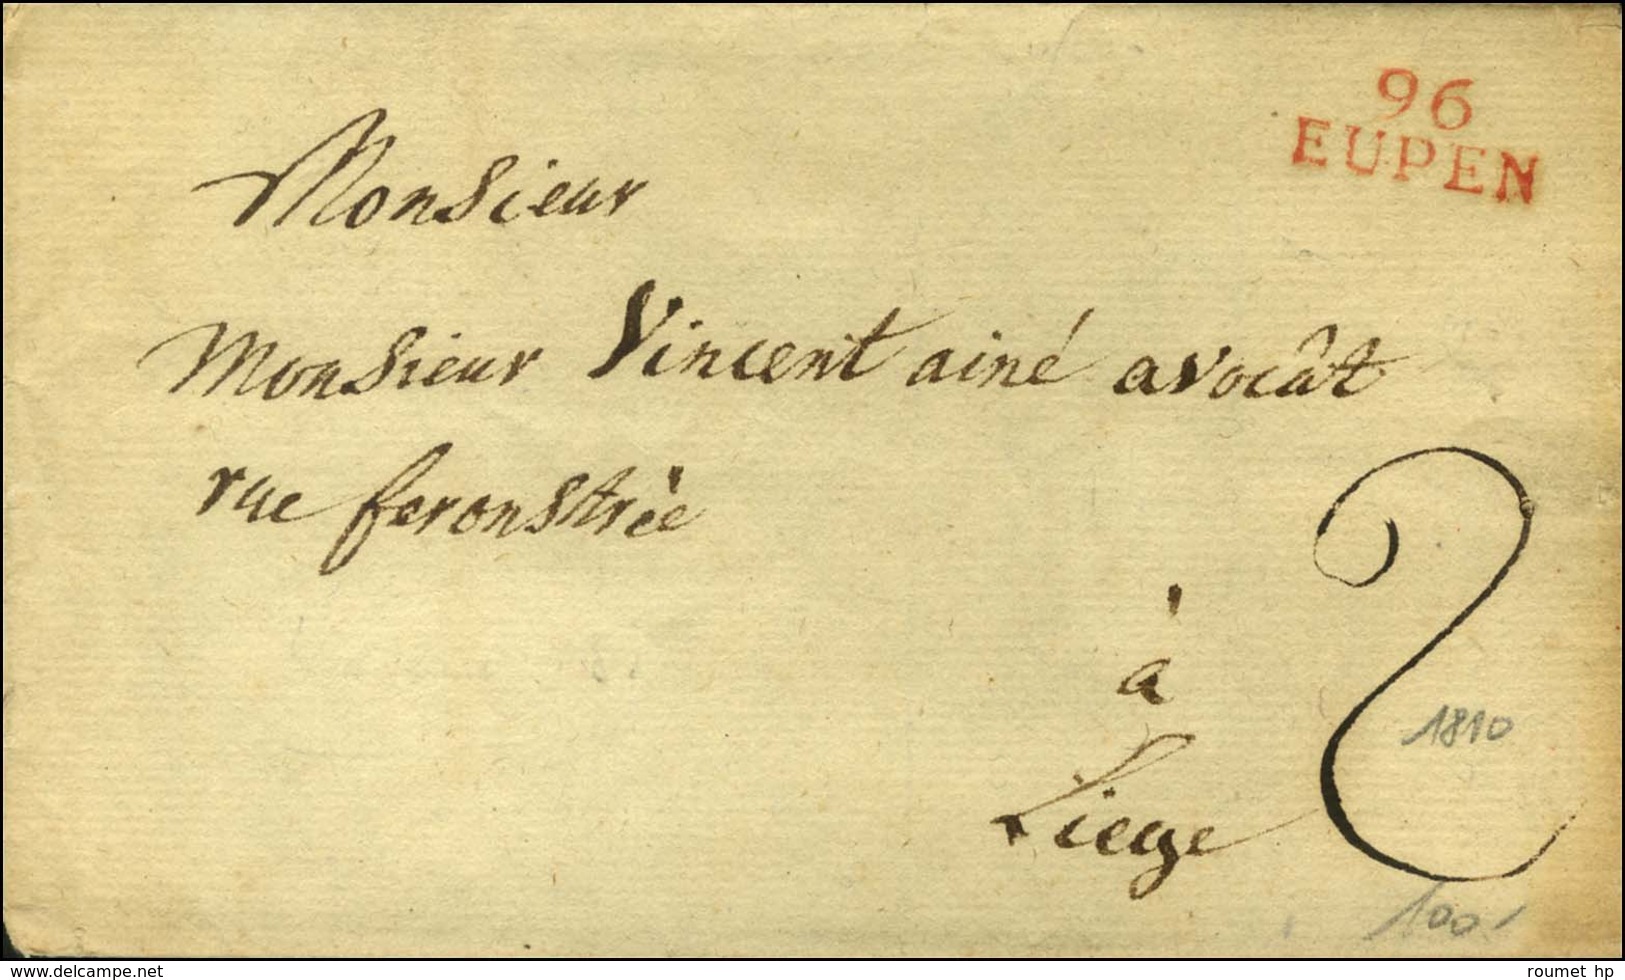 96
EUPEN
Monsieur
Monsieur Vincent ainé avocât
rue feronstrèe
à
Liege
2
1810
100
www.delcampe.net
roumet hp